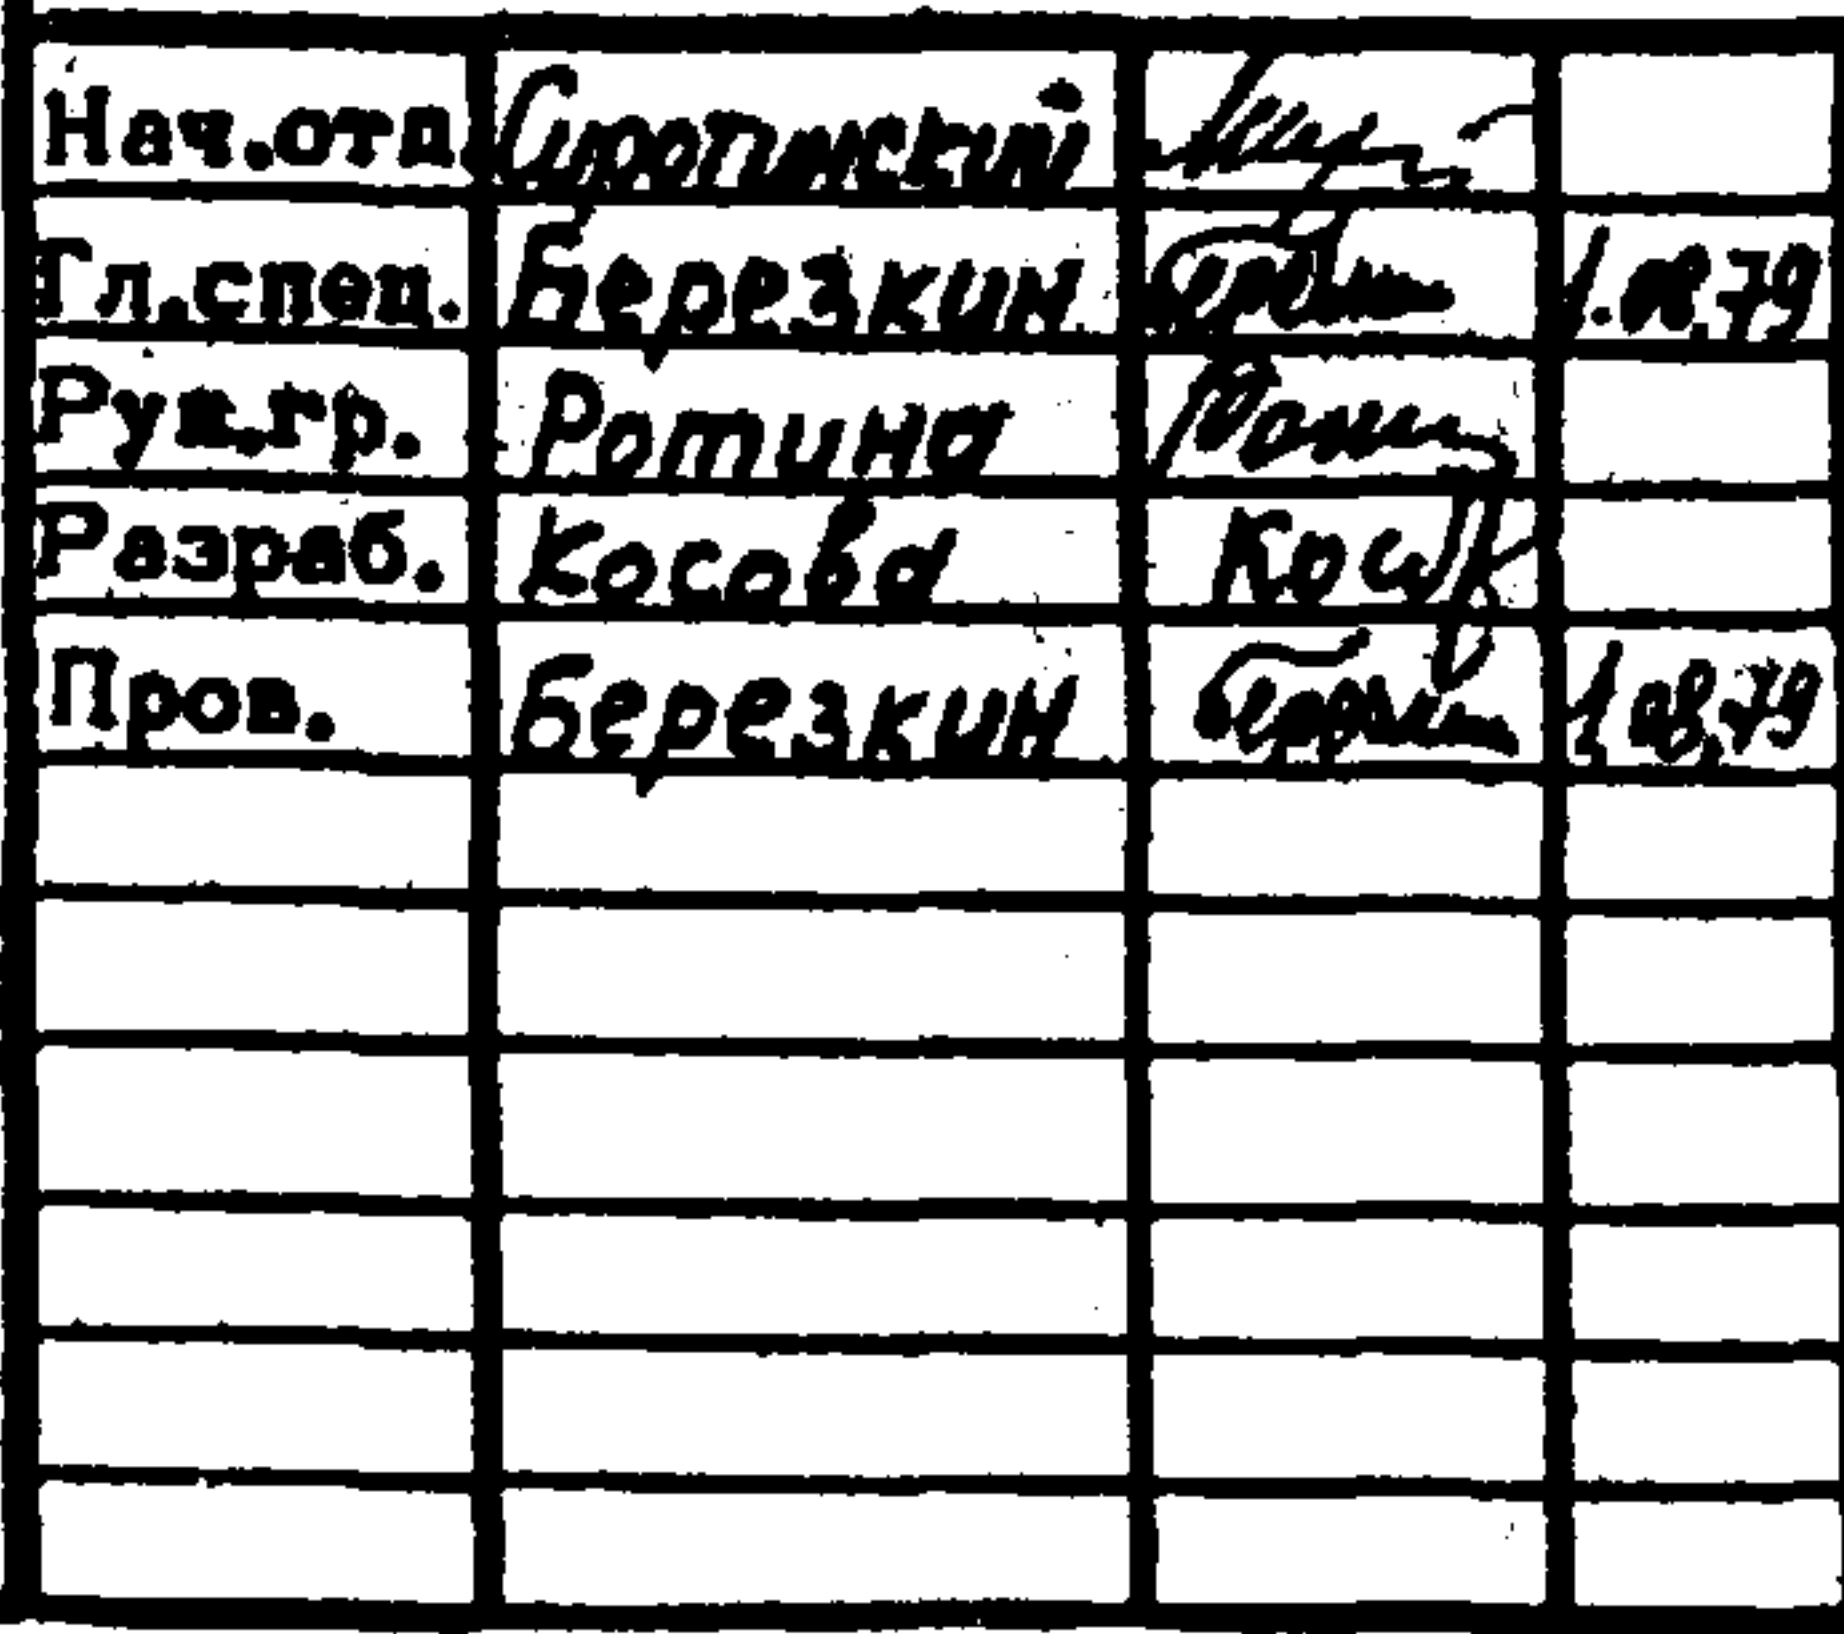 Нач.отд.
Гл.спец. Березкин 1.08.79
Рук.гр. Ротина
Разраб. Косова
Пров. Березкин 1.08.79